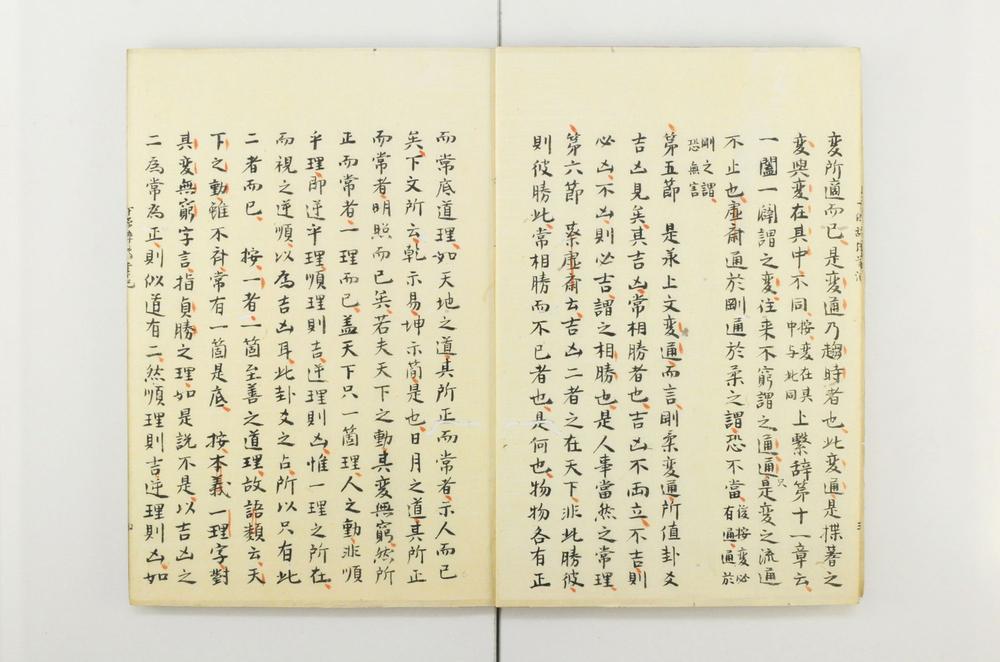 変所適而已是変通乃趨時者也此変通是揲蓍之
変與変在其中不同按変在其中与此同上繫辞第十一章云
一闔一闢謂之変往来不窮謂之通通只是変之流通
不止也虚斎通於剛通於柔之謂恐不當後按変必有通通於
剛之謂恐無害
第五節 是承上文変通而言剛柔変通所値卦爻
吉凶見矣其吉凶常相勝者也吉凶不両立不吉則
必凶不凶則必吉謂之相勝也是人事當然之常理
第六節 蔡虚斎云吉凶二者之在天下非此勝彼
則彼勝此常相勝而不已者也是何也物物各有正
而常底道理如天地之道其所正而常者示人而已
矣下文所云乾示易坤示簡是也日月之道其所正
而常者明照而已矣若夫天下之動其変無窮然所
正而常者一理而已盖天下只一箇理人之動非順
乎理即逆乎理順理則吉逆理則凶惟一理之所在
而視之逆順以為吉凶耳此卦爻之占所以只有此
二者而已 按一者一箇至善之道理故語類云天
下之動雖不斉常有一箇是底 按本義一理字對
其変無窮字言指貞勝之理如是説不是以吉凶之
二為常為正則似道有二然順理則吉逆理則凶如